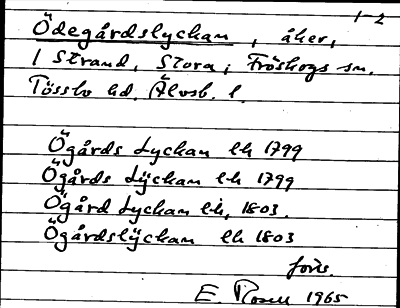 1-2
Ödegårdslyckan, åker,
/ Strand, Stora; Fröskogs sn.
Tössbo hd. Älvsb. l.
Ögårds Lyckan lh 1799
Ögårds Lÿckan lh 1799
Ögård Lyckan, lh, 1803.
Ögårdslÿckan lh 1803
forts.
E. Rosell 1965